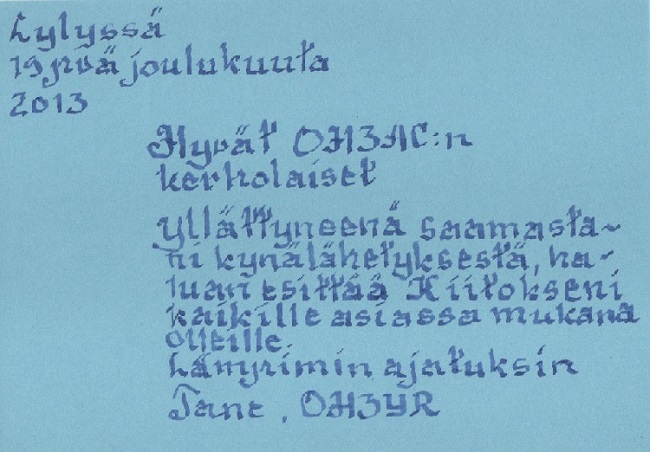 Lylyssä
19 pvä joulukuuta
2013
Hyvät OH3AC:n
kerholaiset
yllättyneenä saamasta-
ni kynälähetyksestä, ha-
luan esittää Kiitokseni
kaikille asiassa mukana
olleille.
Lämpimin ajatuksin
Tane, OH3YR